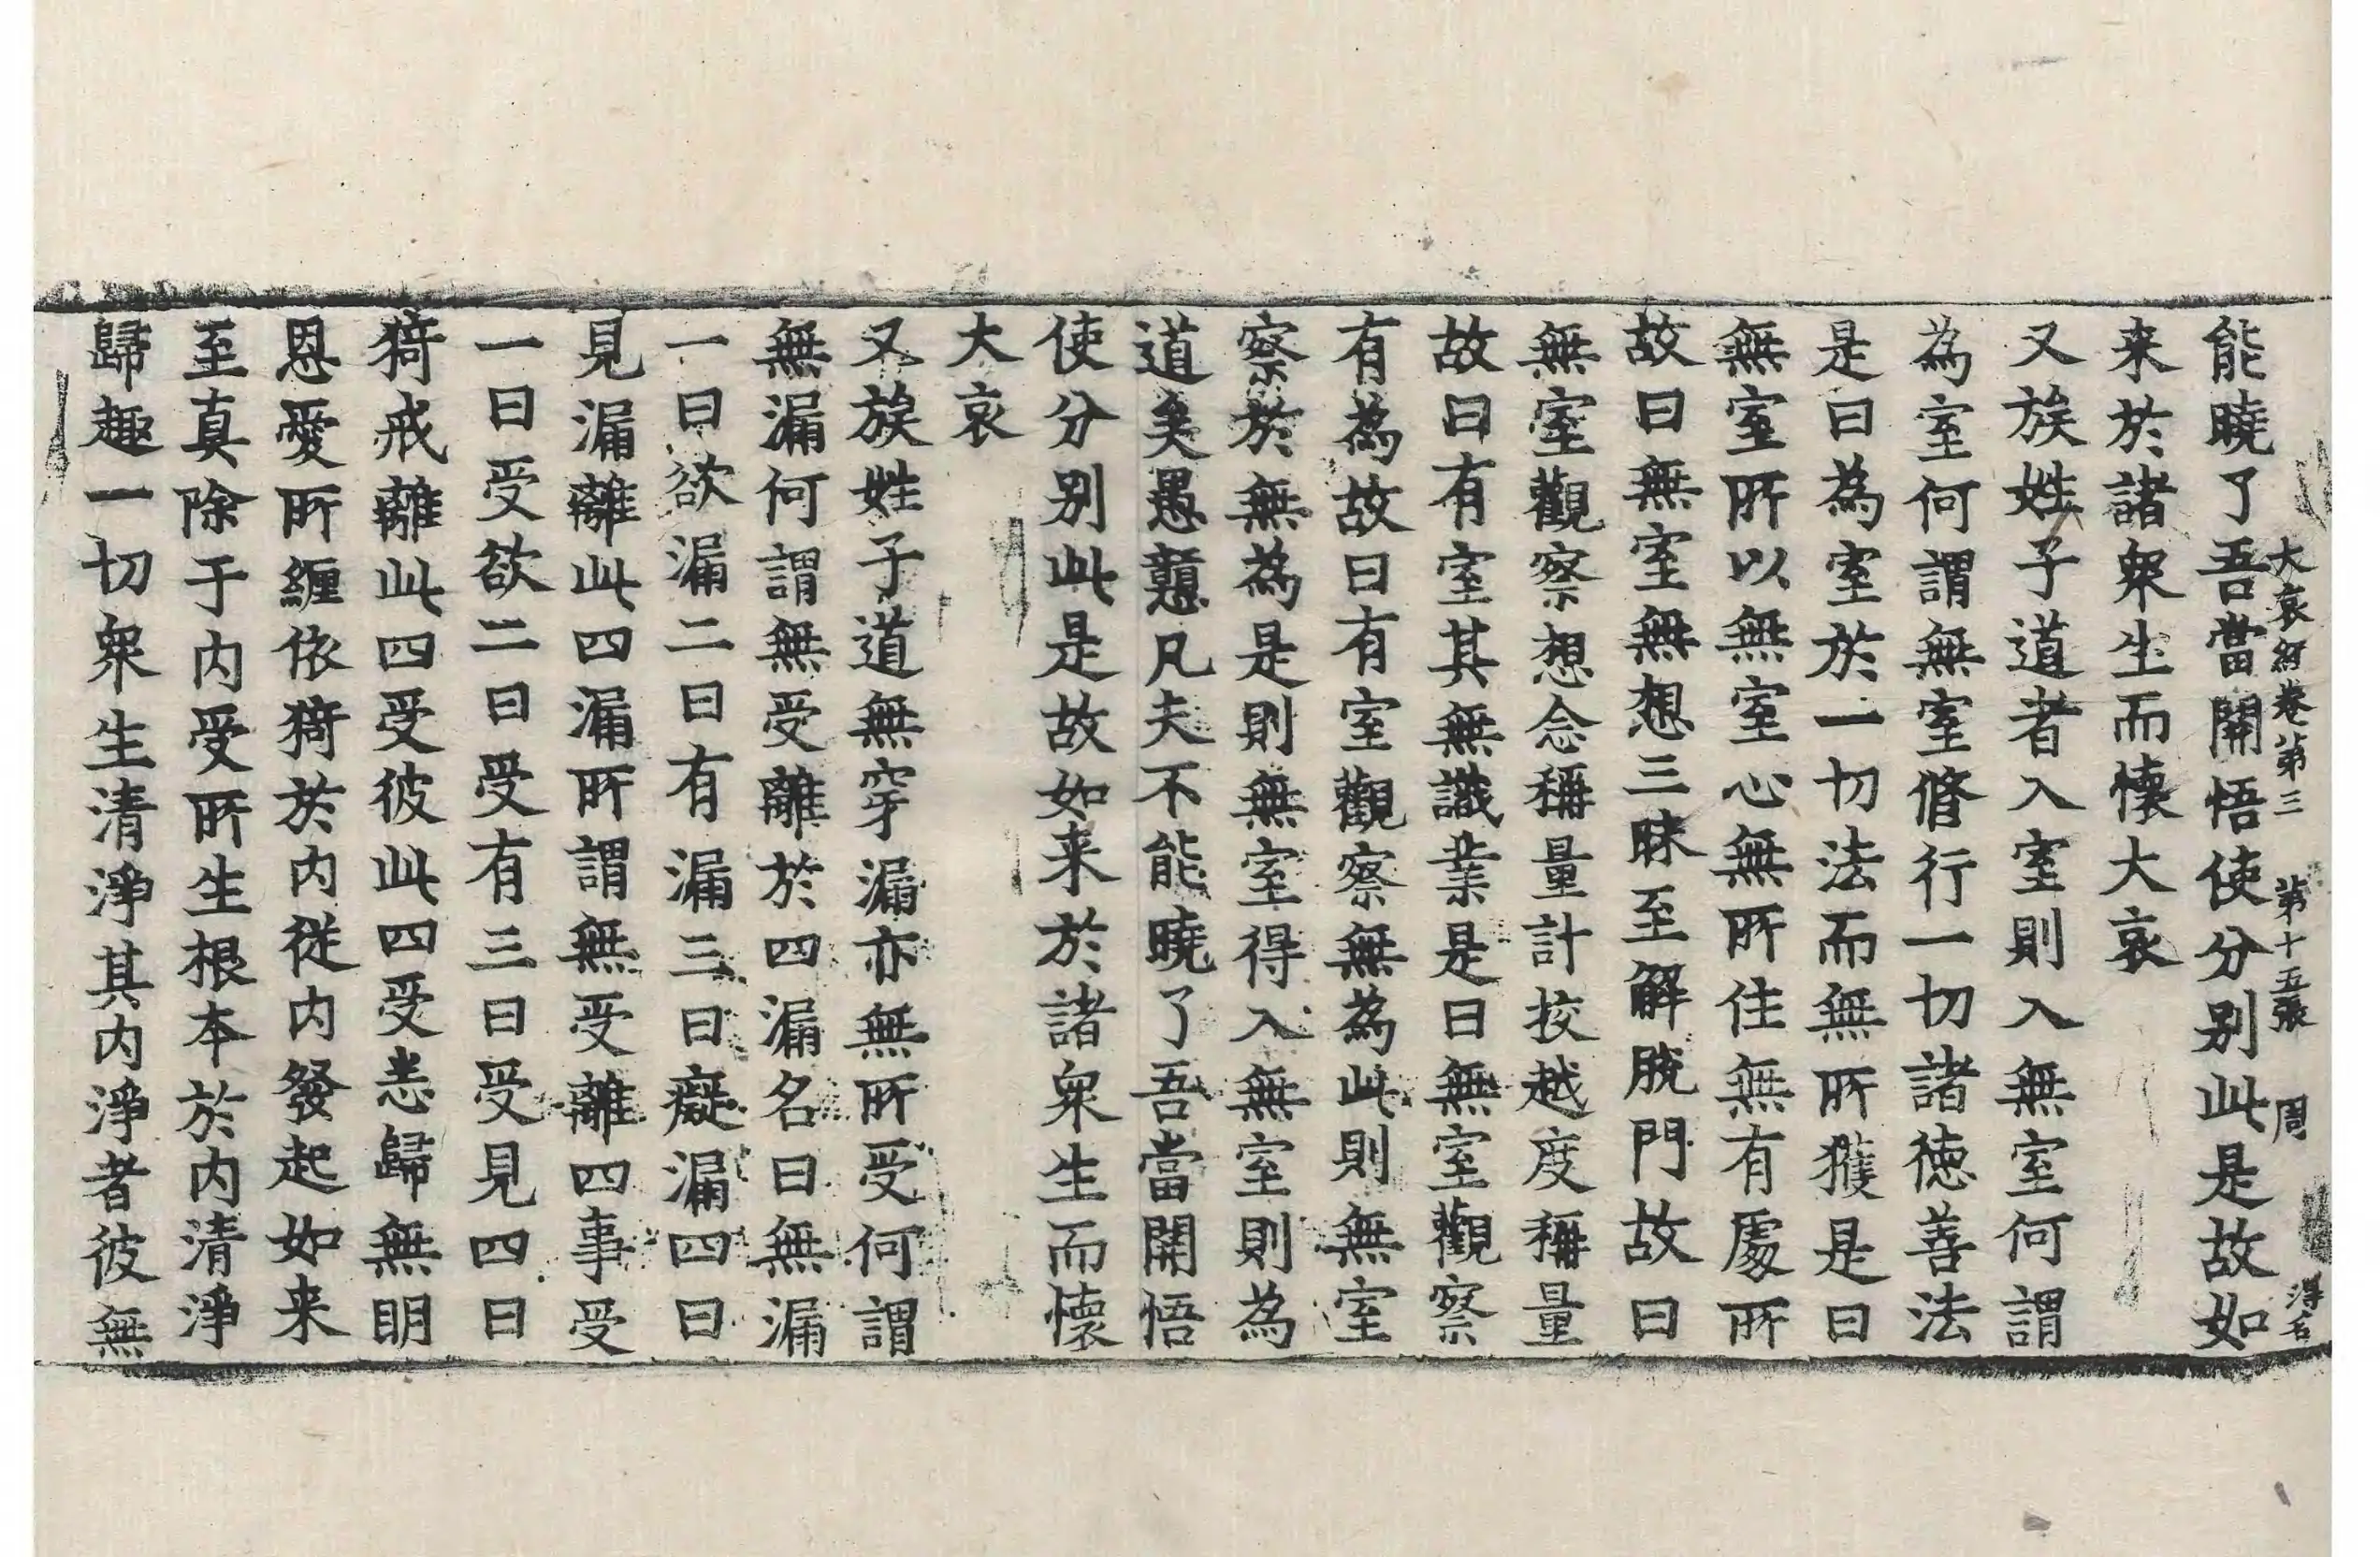 大哀經卷第三 第十五張 周
能曉了吾當開悟使分別此是故如
来於諸衆生而懷大哀
又族姓子道者入室則入無室何謂
為室何謂無室脩行一切諸德善法
是曰為室於一切法而無所獲是曰
無室所以無室心無所住無有處所
故曰無室無想三昧至解脫門故曰
無室觀察想念稱量計挍越度稱量
故曰有室其無識業是曰無室觀察
有為故曰有室觀察無為此則無室
察於無為是則無室得入無室則為
道矣愚戇凡夫不能曉了吾當開悟
使分別此是故如来於諸衆生而懷
大哀
又族姓子道無穿漏亦無所受何謂
無漏何謂無受離於四漏名曰無漏
一曰欲漏二曰有漏三曰癡漏四曰
見漏離此四漏所謂無受離四事受
一曰受欲二曰受有三曰受見四曰
猗戒離此四受彼此四受恙歸無明
恩愛所纏依猗於内從内發起如来
至真除于内受所生根本於内清淨
歸趣一切衆生清淨其内淨者彼無